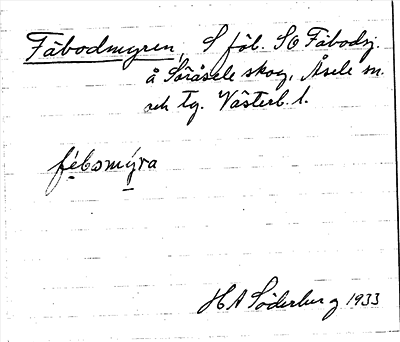 Fäbodmyren, S föl. SO Fäbodsj.
å Söråsele skog, Åsele sn.
och tg. Västerb. l.
fébomýra
H A Söderberg 1933